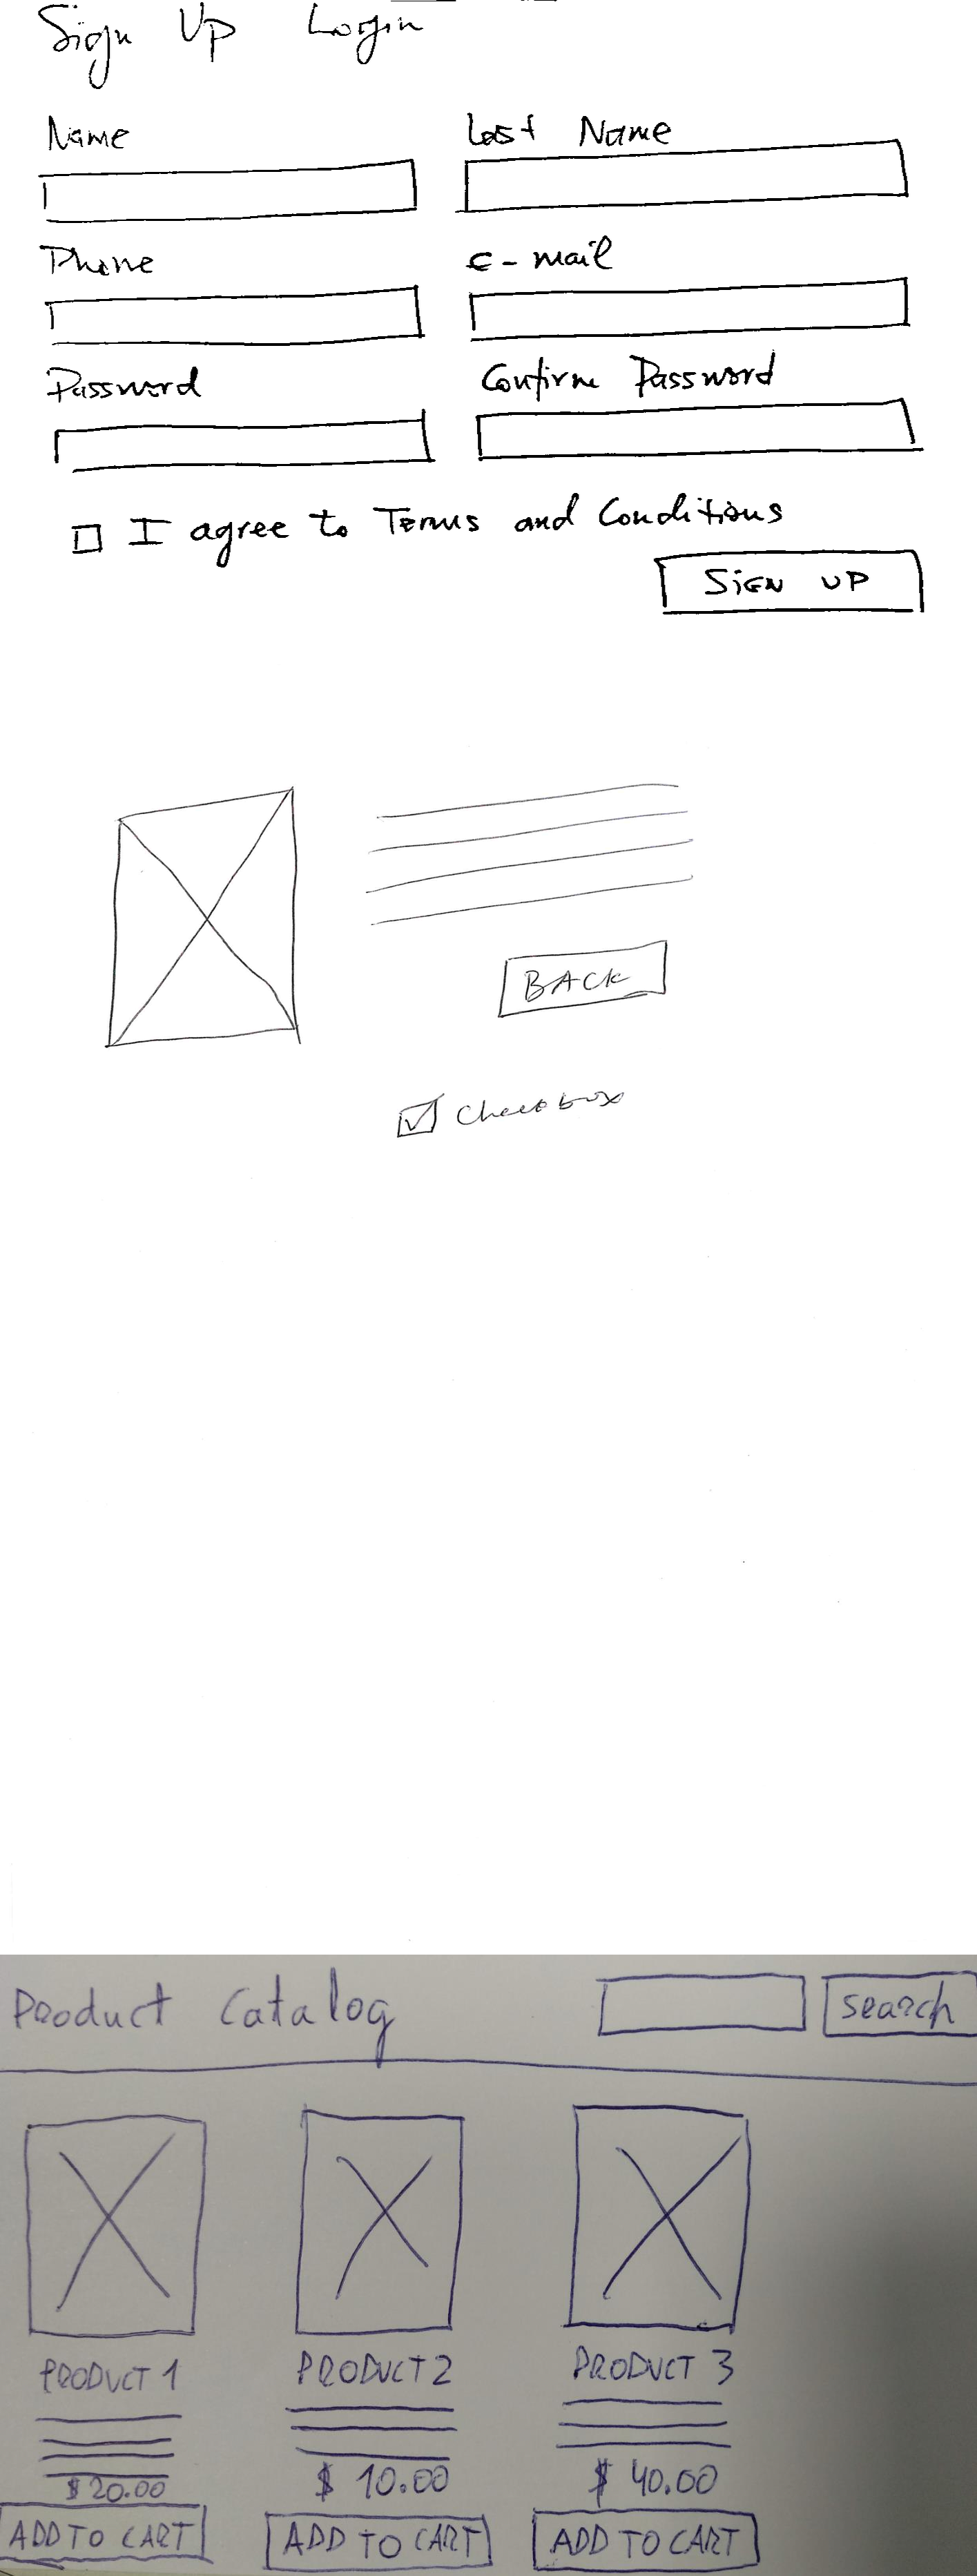 Sign Up Login
Name Last Name
Phone e-mail
Password Confirm Password
I agree to Terms and Conditions
SiGN UP
BACK
Checkbox
Product Catalog search
PRODUCT 1 PRODUCT 2 PRODUCT 3
$20.00 $ 10.00 $ 40.00
ADD TO CART ADD TO CART ADD TO CART